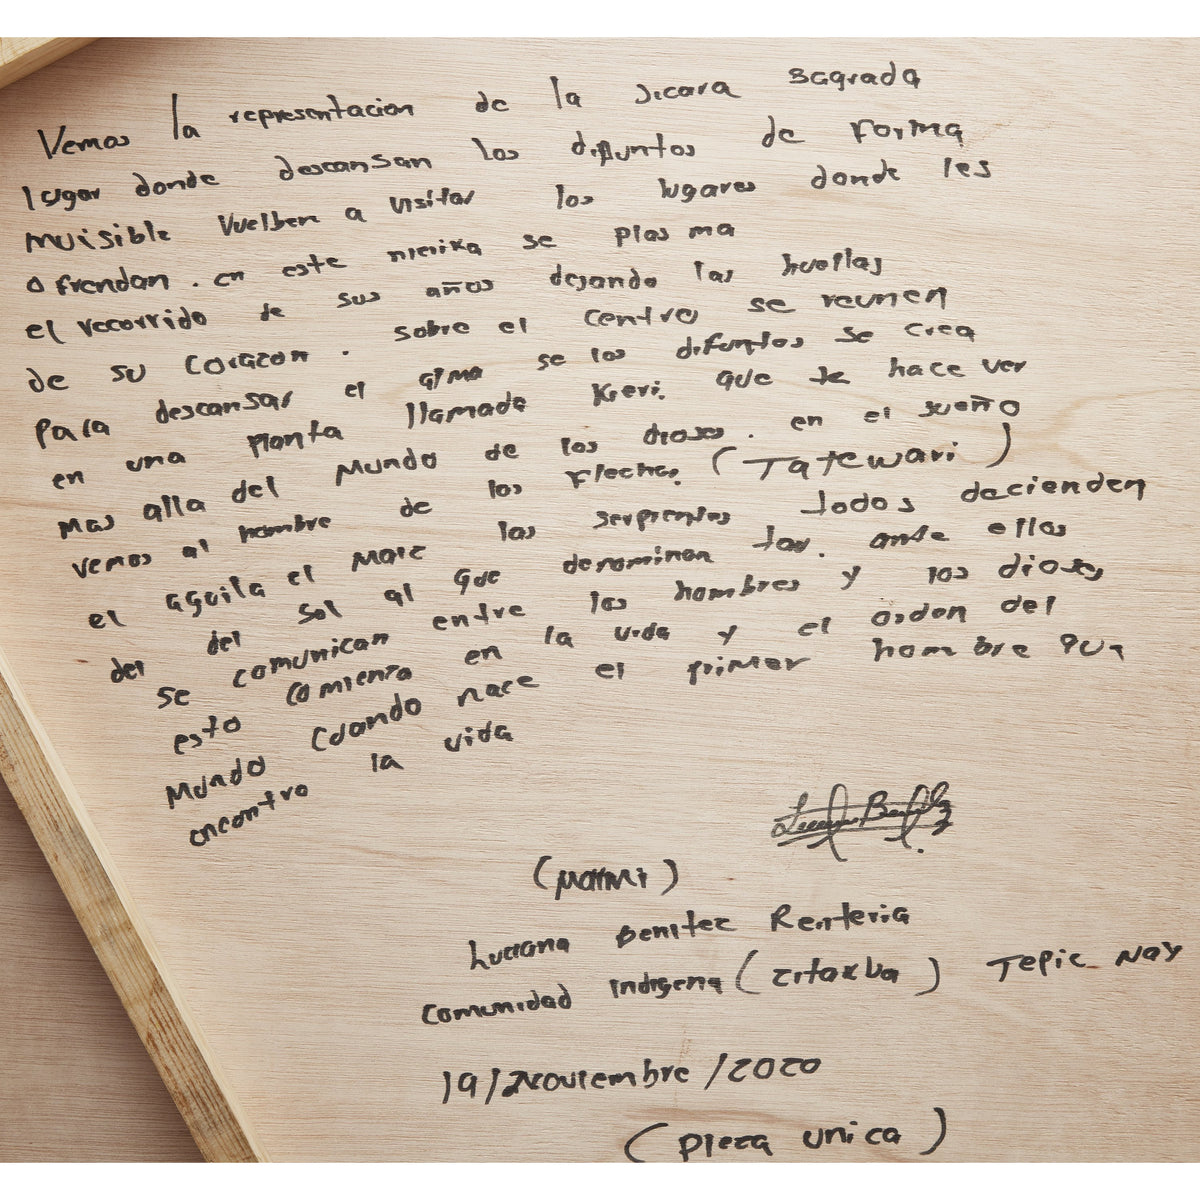 Vemos la representacion de la Jicara sagrada
lugar donde descansan los difuntos de forma
muisible vuelben a visitar los lugares donde les
ofrendan. en este nierika se plas ma
el recorrido de sus años dejando las huellas
de su corazon. sobre el centro se reunen
para descansar el alma se los difuntos se crea
en una planta llamada Kieri. que te hace ver
mas alla del mundo de los dioses. en el sueño
vemos al hombre de los flechas. (Tatewari)
el aguila el maiz las serpientes todos decienden
del del sol al que denominan tau. ante ellas
se comunican entre los hombres y los dioses
esto comienza en la vida y el orden del
mundo cuando nace el primer hombre que
encontro la vida
Luciana Benitez Renteria
comunidad indigena (zitakua) Tepic Nay
19/Noviembre/2020
(pieza unica)